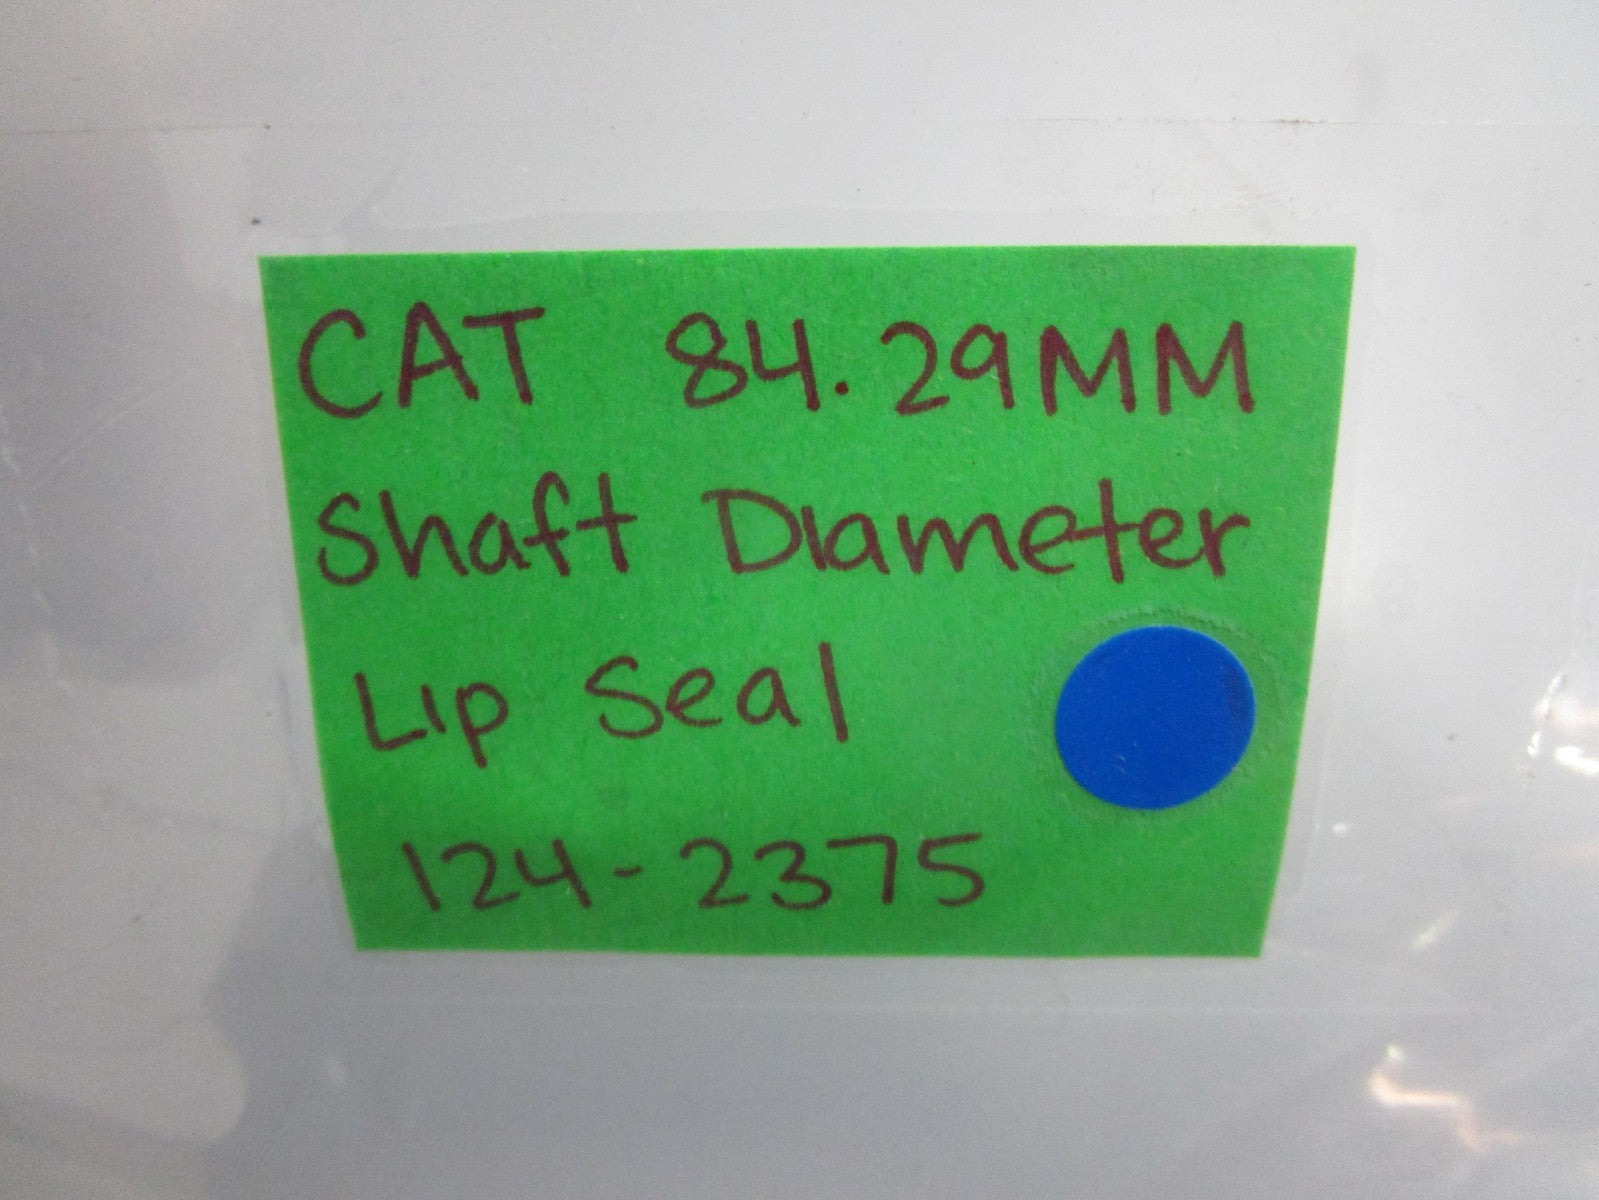 CAT 84.29MM
Shaft Diameter
Lip Seal
124-2375